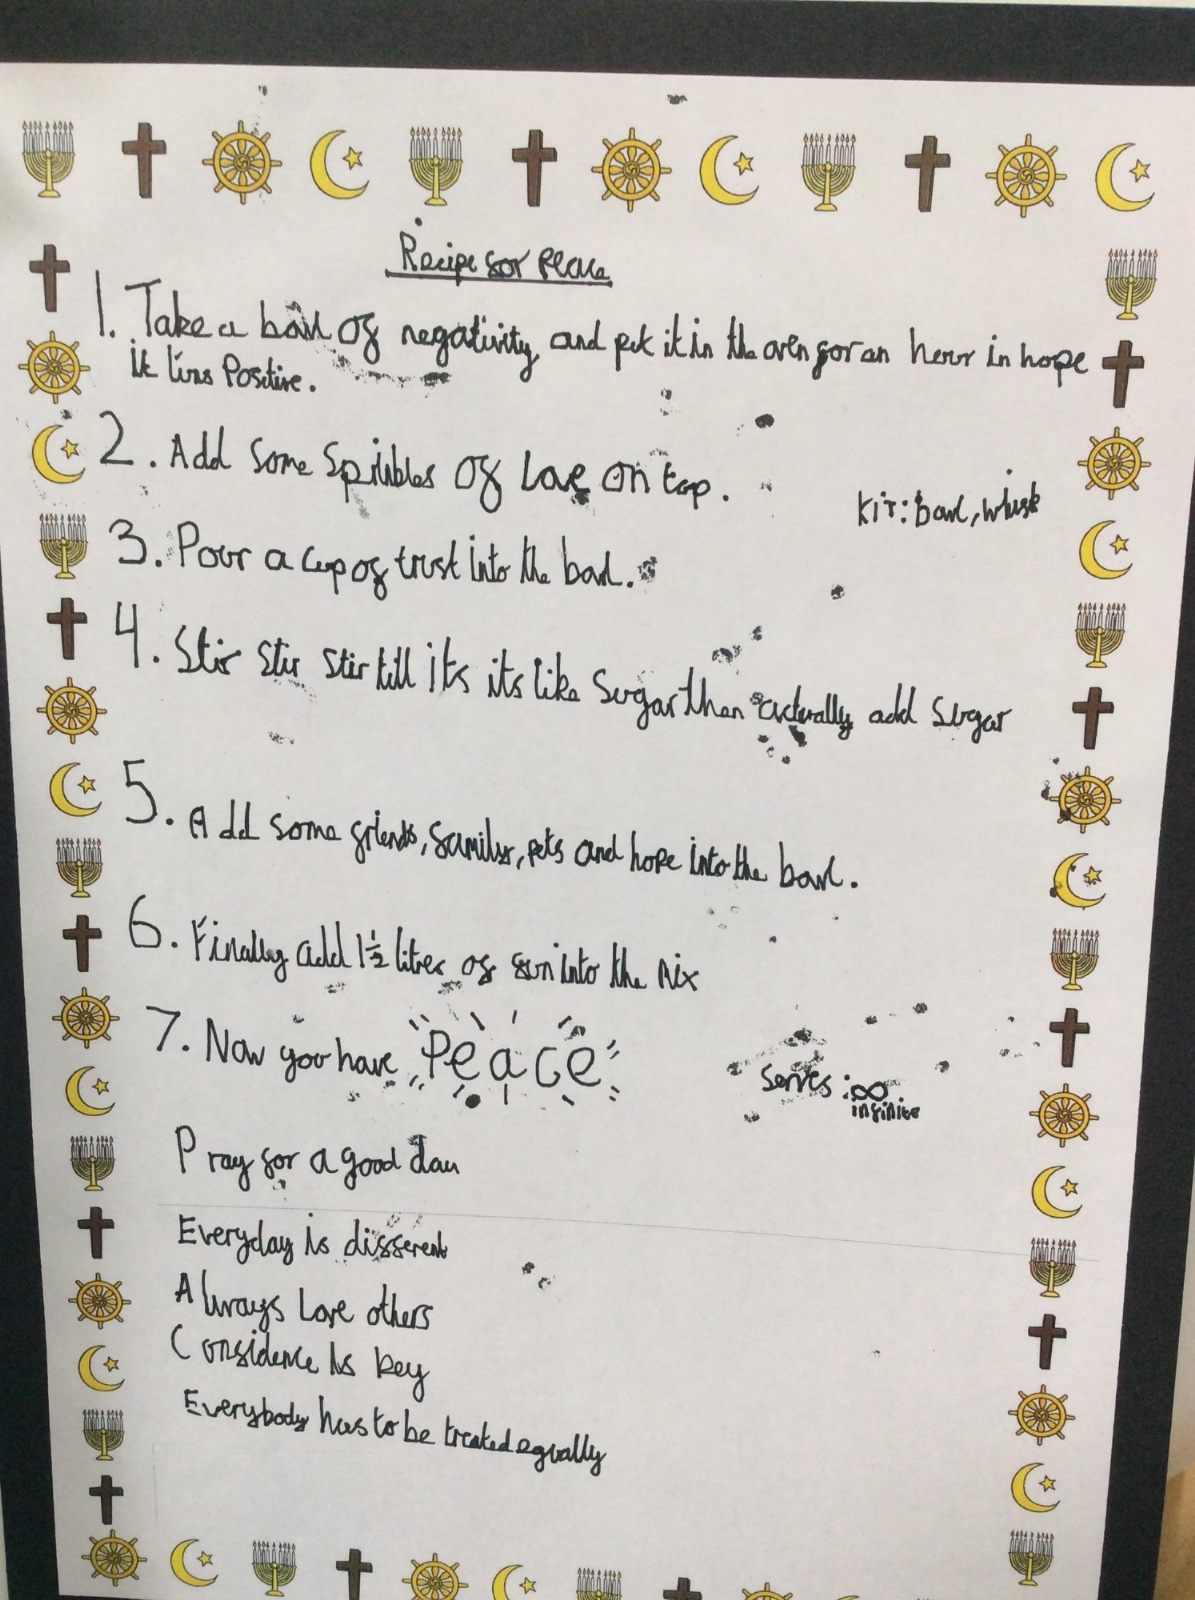 Recipe for Peace
1. Take a bowl of negativity and put it in the oven for an hour in hope
it turns Positive.
2. Add Some Sprinkles of Love on top.
Kit: bowl, whisk
3. Pour a cup of trust into the bowl.
4. Stir Stir Stir till its its like Sugar then acturally add Sugar
5. Add some friends, family, pets and hope into the bowl.
6. Finally add 1½ litres of fun into the mix
7. Now you have Peace
Serves: ∞
infinite
Pray for a good day
Everyday is different
Always Love others
Confidence is key
Everybody has to be treated equally